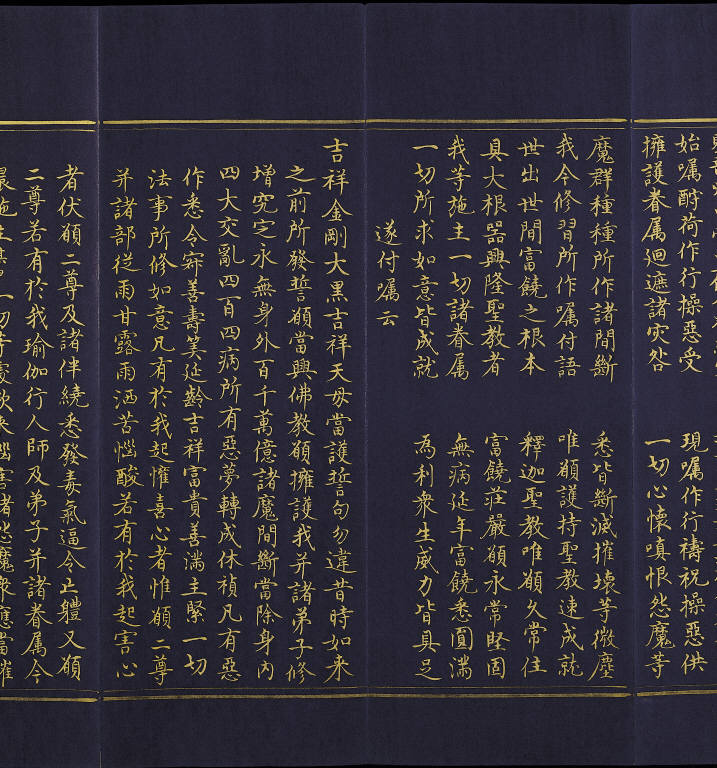 始嘱酧荷作行操惡受　現嘱作行禱祝操惡供
擁護眷属廻遮諸灾咎　一切心懷嗔恨然魔等
魔群種種所作諸間斷　悉皆斷滅摧壞等微塵
我今修習所作嘱付語　唯願護持聖教速成就
世出世間富饒之根本　釋迦聖教唯願久常住
具大根器興隆聖教者　富饒莊嚴願永常堅固
我等施主一切諸眷属　無病延年富饒悉圓满
一切所求如意皆成就　為利衆生威力皆具足
遂付嘱云
吉祥金剛大黒吉祥天母當護誓句勿違昔時如来
之前所發誓願當興佛教願擁護我并諸弟子修
增究定永無身外百千萬億諸魔間斷當除身内
四大交亂四百四病所有惡夢轉成休禎凡有惡
作悉令寂善壽筭延齡吉祥富貴善满主緊一切
法事所修如意凡有於我起懽喜心者惟願二尊
并諸部從雨甘露雨洒苦惱酸若有於我起害心
者伏願二尊及諸伴繞悉發毒氣逼令止軆又願
二尊若有於我瑜伽行人師及弟子并諸眷属今